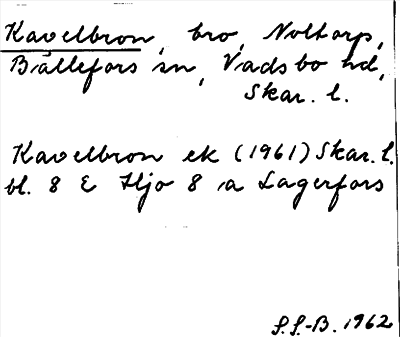 Kavelbron, bro, Noltorp,
Bällefors sn, Vadsbo hd,
Skar. l.
Kavelbron ek (1961) Skar. l.
bl. 8 E Hjo 8 a Lagerfors
S.S.-B. 1962